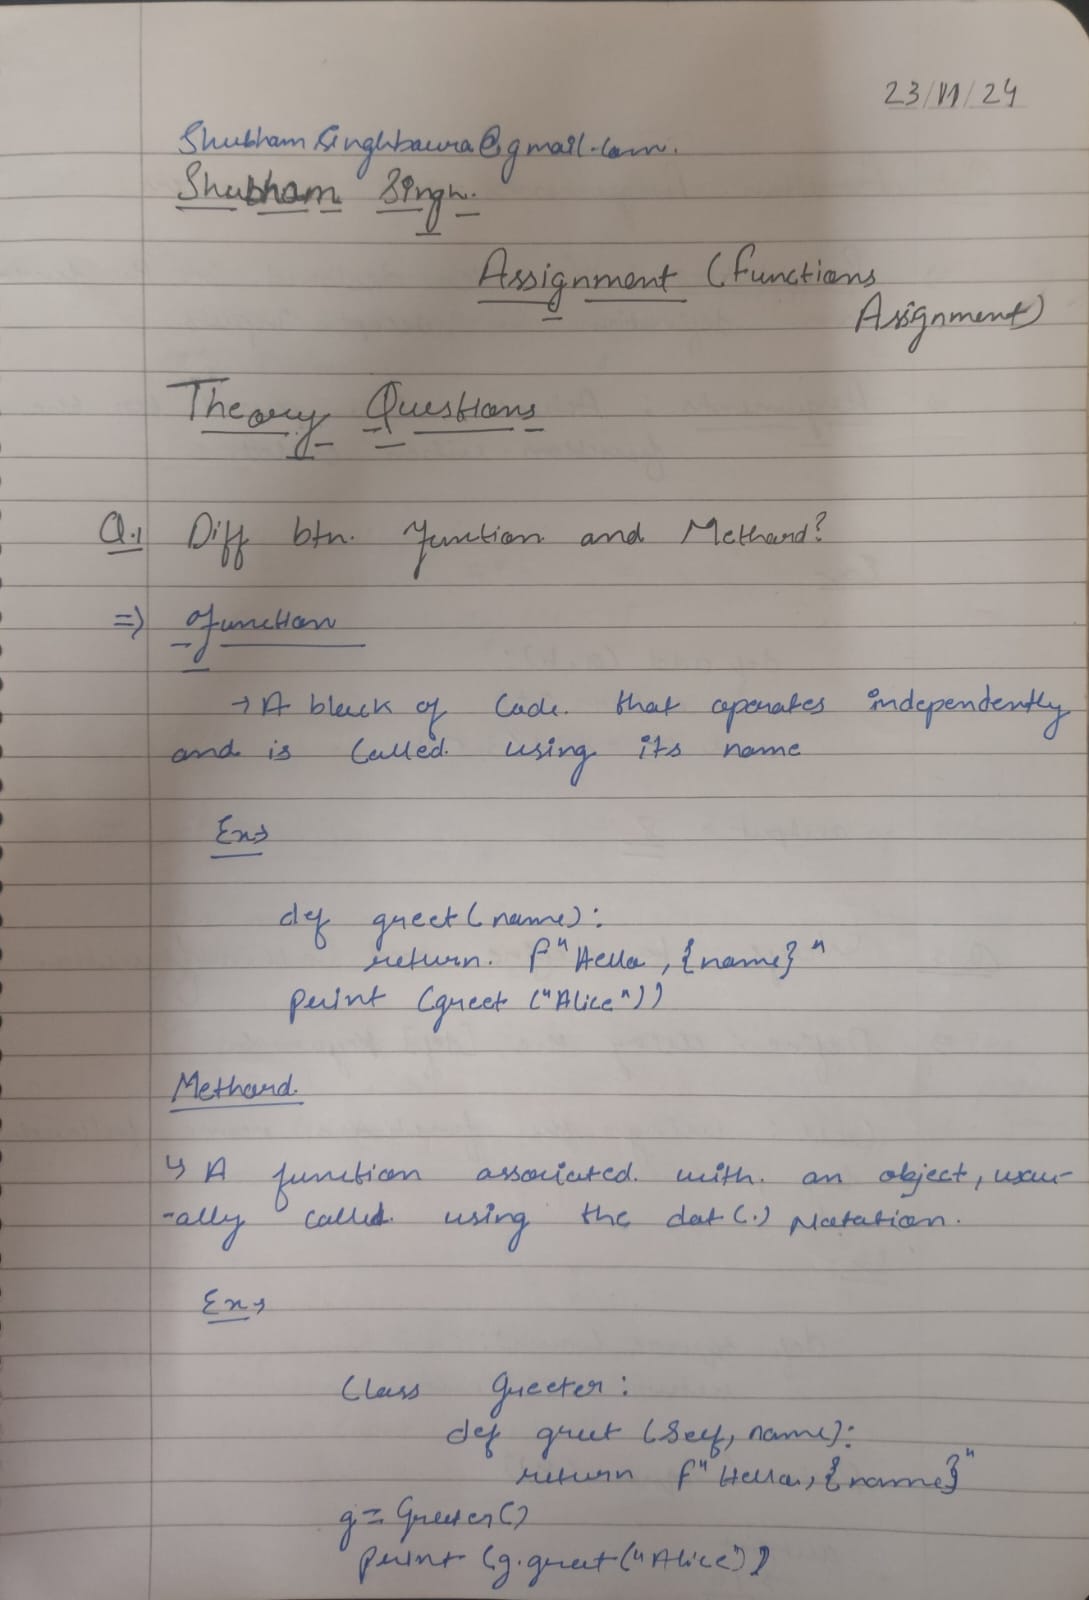 23/11/24
Shubhamsinghbawra@gmail.com.
Shubham Singh.
Assignment (Functions
Assignment)
Theory Questions
Q.1 Diff btn. function and Methord?
=> function
→ A block of Code. that operates independently
and is Called. using its name
Ex→
def greet(name):
return. f"Hello, {name}"
print (greet ("Alice"))
Methord.
↳ A function associated. with. an object, usu-
-ally called. using the dot (.) Notation.
Ex→
Class Greeter:
def greet (self, name):
return f"Hello, {name}"
g = Greeter()
print (g.greet("Alice"))